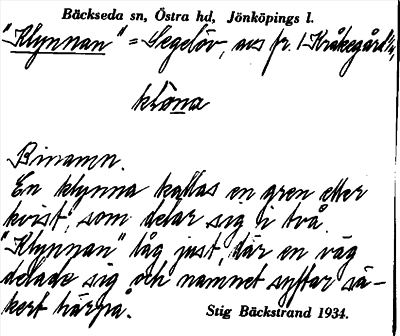 Bäckseda sn, Östra hd, Jönköpings l.
"Klynnan" = Segelöv, avs fr. Kråkegård
klöna
Binamn.
En klynna kallas en gren eller
kvist, som delar sig i två.
"Klynnan" låg just, där en väg
delade sig och namnet syftar sä-
kert härpå.
Stig Bäckstrand 1934.